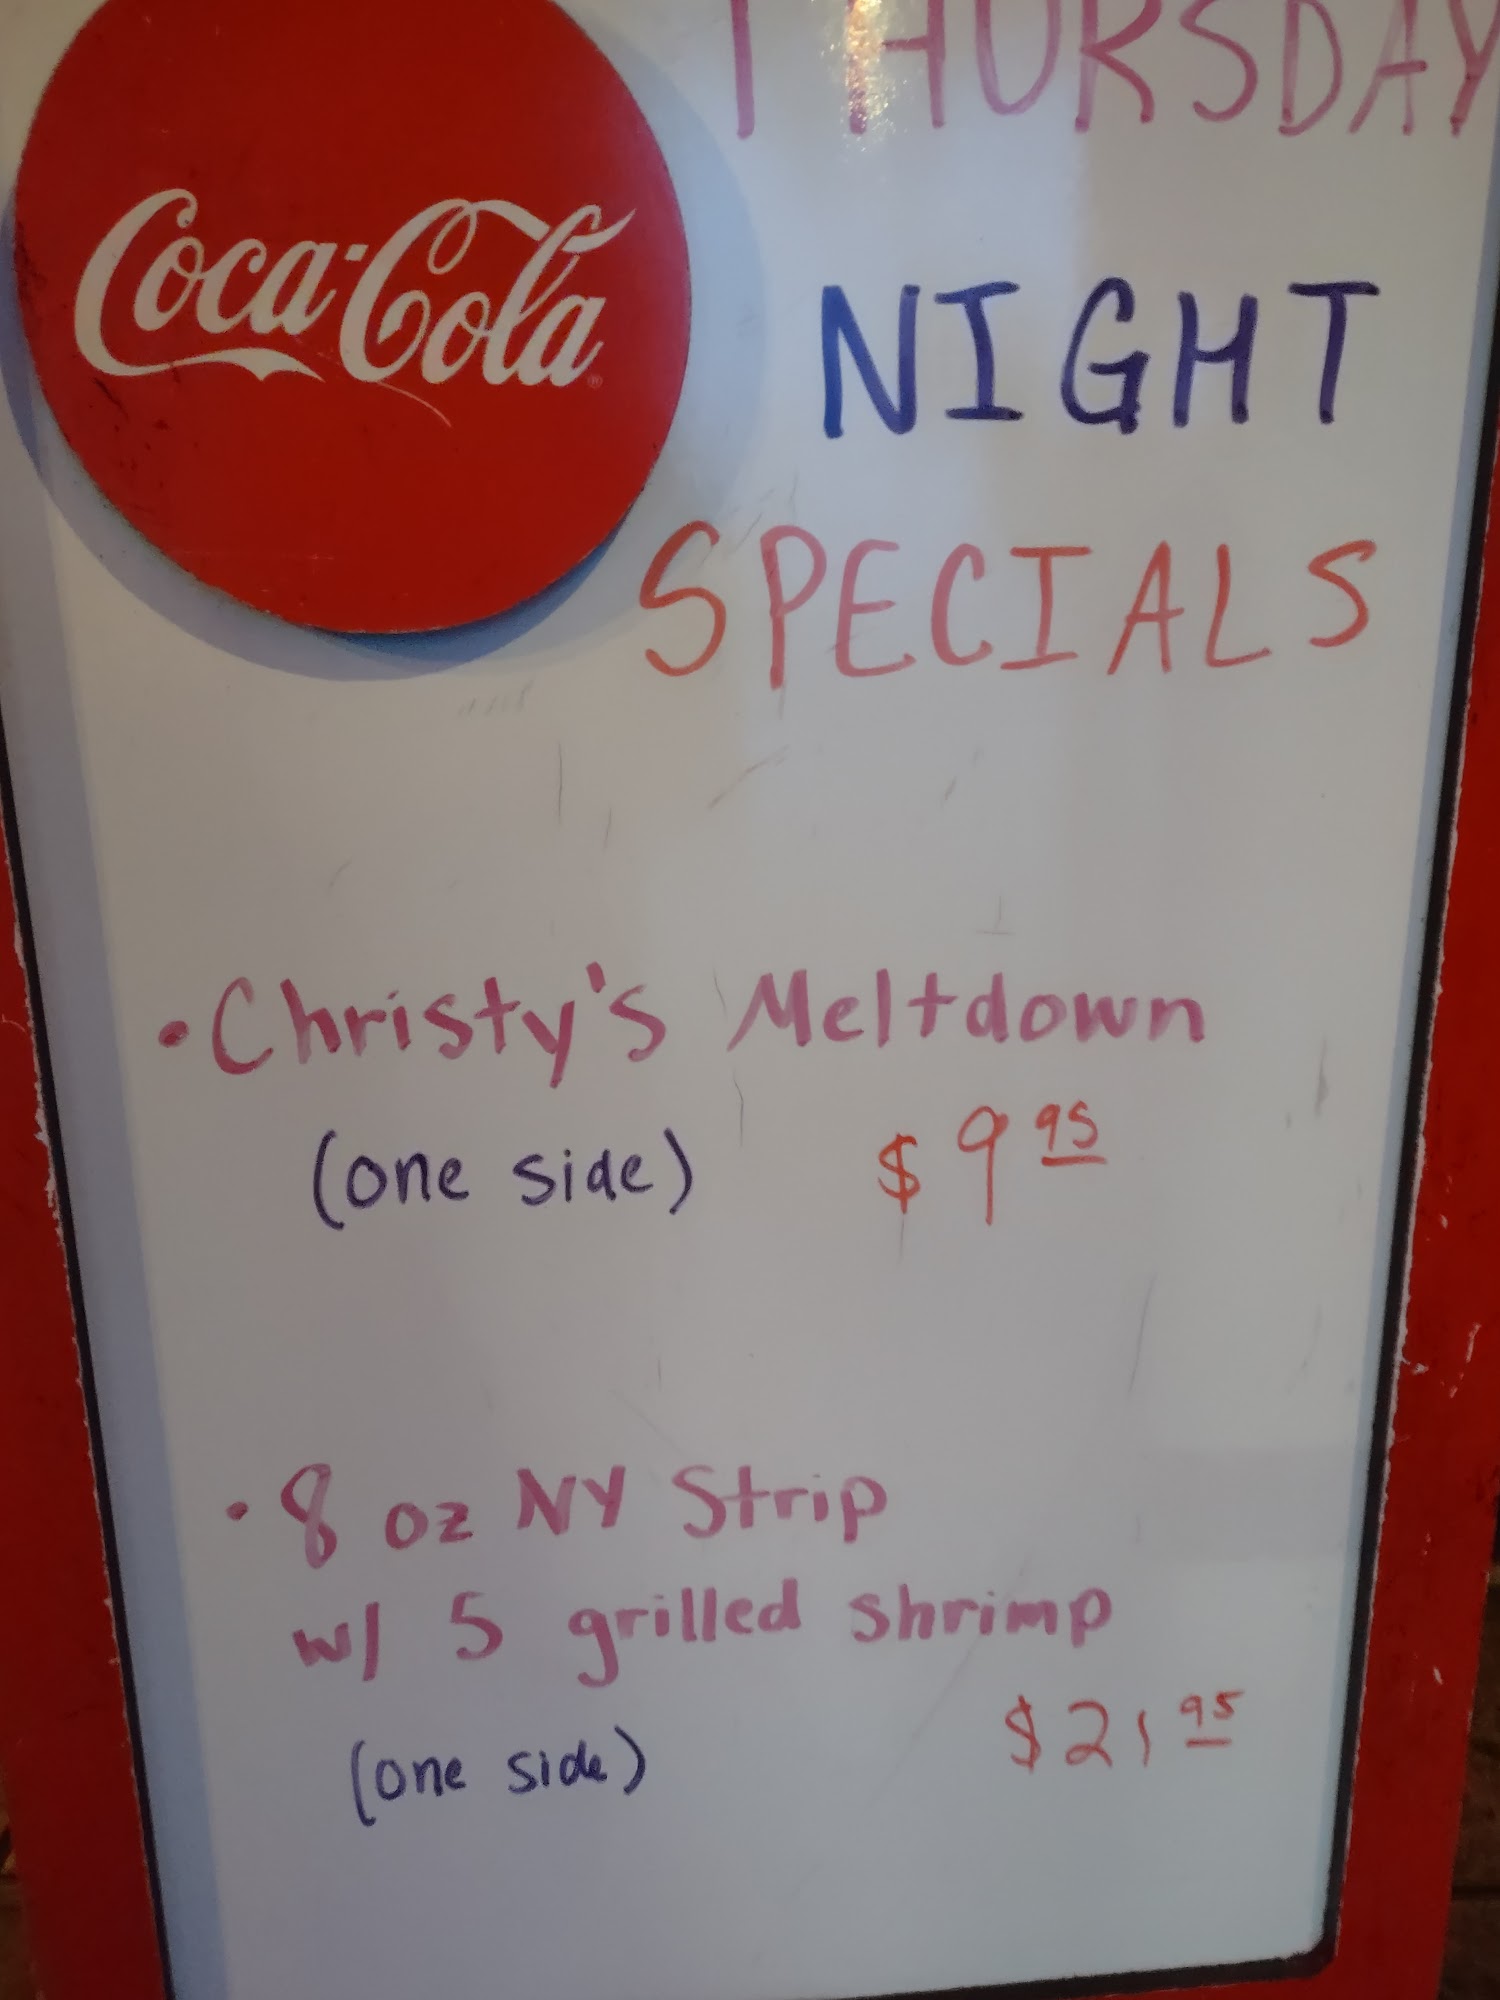 THURSDAY
Coca-Cola®
NIGHT
SPECIALS
• Christy's Meltdown
(one side) $9 95
• 8 oz NY Strip
w/ 5 grilled shrimp
(one side) $21 95